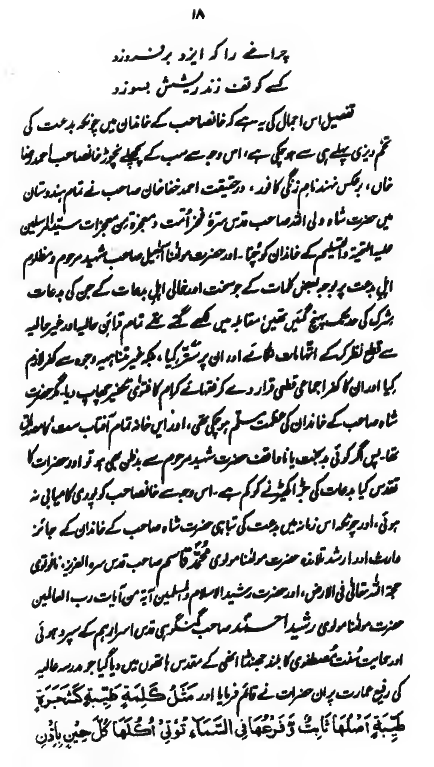 ۱۸
چراغے را کہ ایزد برفروزد
کسے کو تف زند ریشش بسوزد
تفصیل اس اجمال کی یہ ہے کہ خانصاحب کے خاندان میں چونکہ بدعت کی
تخم ریزی پہلے ہی سے ہو چکی ہے، اس وجہ سے سب کے پچھلے نچوڑ خانصاحب احمد رضا
خاں، برعکس نہند نام زنگی کافور، درحقیقت احمد خفا خان صاحب نے تمام ہندوستان
میں حضرت شاہ ولی اللہ صاحب قدس سرہٗ فخر امت و معجزہ من معجزات سید المرسلین
علیہ التحیۃ والتسلیم کے خاندان کو چنا۔ اور حضرت مولٰنا اسمٰعیل صاحب شہید مرحوم و مظلوم
اہل بدعت پر بوجہ بعض کلمات کے جو سخت اور غالی اہل بدعات کے جن کی بدعات
شرک کی حد تک پہنچ گئیں تھیں مقابلہ میں لکھے گئے تھے تمام قرائن حالیہ اور غیر حالیہ
سے قطع نظر کر کے اتہامات لگائے اور ان پر ستّر کیا، بلکہ غیر متناہیہ وجوہ سے کفر لازم
کیا اور ان کا کفر اجماعی قطعی قرار دے کر فقہائے کرام کا فتویٰ تکفیر چھاپ دیا۔ مگر حضرت
شاہ صاحب کے خاندان کی عظمت مسلم ہو چکی تھی، اور ایں خانہ تمام آفتاب ست کا مصداق
تھا۔ پس اگر کوئی بدبخت یا ناواقف حضرت شہید مرحوم سے بدظن بھی ہو تو اور حضرات کا
تقدس کیا بدعات کی جڑ اکھیڑنے کو کم ہے۔ اس وجہ سے خانصاحب کو پوری کامیابی نہ
ہوئی، اور چونکہ اس زمانہ میں بدعت کی تباہی حضرت شاہ صاحب کے خاندان کے جائز
وارث اور ارشد تلامذہ حضرت مولٰنا مولوی محمد قاسم صاحب قدس سرہ العزیز نانوتوی
حجۃ اللہ تعالیٰ فی الارض، اور حضرت رشید الاسلام والمسلمین آیۃ من آیات رب العالمین
حضرت مولٰنا مولوی رشید احمد صاحب گنگوہی قدس اسرارہم کے سپرد ہوئی
اور حمایت سنت مصطفوی کا بلند جھنڈا انھی کے مقدس ہاتھوں میں دیا گیا جو مدرسہ عالیہ
کی رفیع عمارت پر ان حضرات نے قائم فرمایا اور مَثَلُ كَلِمَةٍ طَيِّبَةٍ كَشَجَرَةٍ
طَيِّبَةٍ اَصْلُهَا ثَابِتٌ وَّفَرْعُهَا فِي السَّمَاءِ تُؤْتِیْ اُكُلَهَا كُلَّ حِيْنٍ بِاِذْنِ